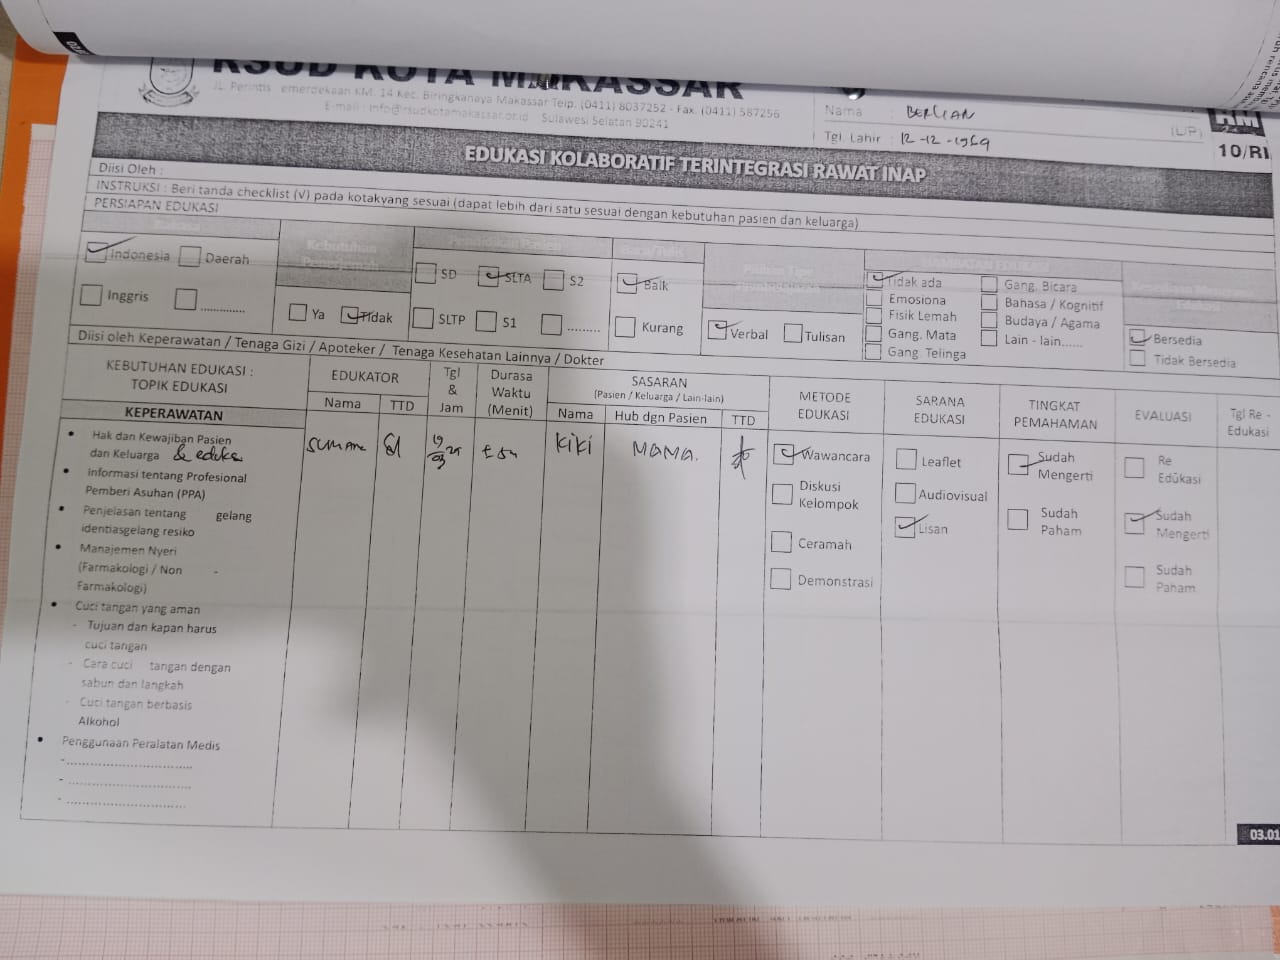 RSUD KOTA MAKASSAR
JL. Perintis emerdekaan KM. 14 Kec. Biringkanaya Makassar Telp. (0411) 8037252 - Fax. (0411) 587256
E-mail : info@rsudkotamakassar.or.id Sulawesi Selatan 90241
Nama : BERLIAN
(L/P)
Tgl. Lahir : 12-12-1969
RM
10/RI
EDUKASI KOLABORATIF TERINTEGRASI RAWAT INAP
Diisi Oleh :
INSTRUKSI : Beri tanda checklist (√) pada kotakyang sesuai (dapat lebih dari satu sesuai dengan kebutuhan pasien dan keluarga)
PERSIAPAN EDUKASI
Bahasa
Indonesia Daerah
Inggris ..............
Kebutuhan
Penerjemah
Ya Tidak
Pendidikan Pasien
SD SLTA S2
SLTP S1 .........
Baca/Tulis
Baik
Kurang
Pilihan Tipe
Verbal Tulisan
HAMBATAN EDUKASI
Tidak ada Gang. Bicara
Emosiona Bahasa / Kognitif
Fisik Lemah Budaya / Agama
Gang. Mata Lain - lain......
Gang. Telinga
Edukasi
Bersedia
Tidak Bersedia
Diisi oleh Keperawatan / Tenaga Gizi / Apoteker / Tenaga Kesehatan Lainnya / Dokter
KEBUTUHAN EDUKASI :
TOPIK EDUKASI
EDUKATOR
Nama TTD
Tgl
&
Jam
Durasa
Waktu
(Menit)
SASARAN
(Pasien / Keluarga / Lain-lain)
Nama Hub dgn Pasien TTD
METODE
EDUKASI
SARANA
EDUKASI
TINGKAT
PEMAHAMAN
EVALUASI
Tgl Re -
Edukasi
KEPERAWATAN
• Hak dan Kewajiban Pasien
dan Keluarga & eduka
• Informasi tentang Profesional
Pemberi Asuhan (PPA)
• Penjelasan tentang gelang
identiasgelang resiko
• Manajemen Nyeri
(Farmakologi / Non -
Farmakologi)
• Cuci tangan yang aman
- Tujuan dan kapan harus
cuci tangan
- Cara cuci tangan dengan
sabun dan langkah
- Cuci tangan berbasis
Alkohol
• Penggunaan Peralatan Medis
-..............................
- .............................
- .............................
19
03 25
KIKI
MAMA.
Wawancara
Diskusi
Kelompok
Ceramah
Demonstrasi
Leaflet
Audiovisual
Lisan
Sudah
Mengerti
Sudah
Paham
Re
Edukasi
Sudah
Mengerti
Sudah
Paham
03.01